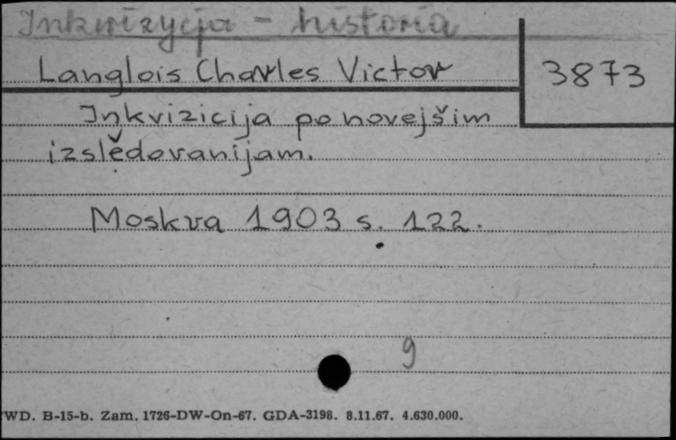 Inkwizycja - historia
Langlois Charles Victor 3873
Inkvizicija po novejšim
izslědovanijam.
Moskva 1903 s. 122.
9
WD. B-15-b. Zam. 1726-DW-On-67. GDA-3198. 8.11.67. 4.630.000.